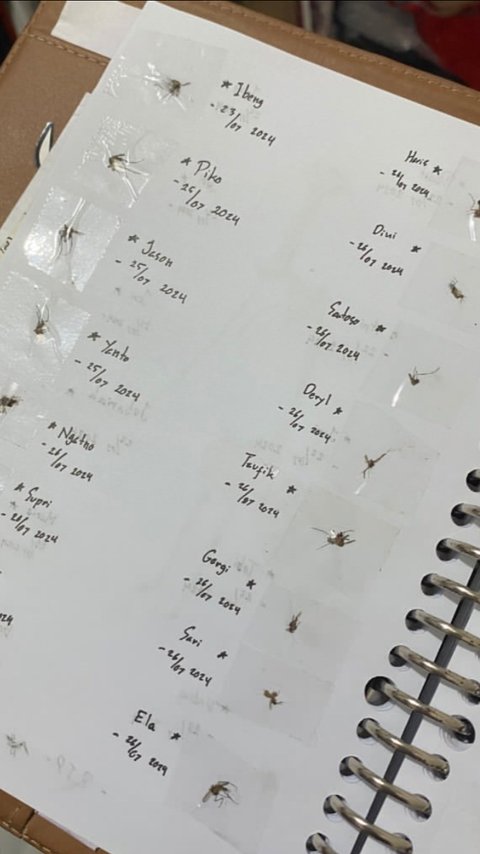 * Ibeng
- 23/07 2024
* Piko
- 25/07 2024
* Jason
- 25/07 2024
* Yanto
- 25/07 2024
* Ngatno
- 26/07 2024
* Supri
- 26/07 2024
024
Haris *
- 26/07 2024
Dini *
- 26/07 2024
Santoso *
- 26/07 2024
Deryl *
- 26/07 2024
Taufik *
- 26/07 2024
Gorgi *
- 26/07 2024
Sari *
- 26/07 2024
Ela *
- 26/07 2024